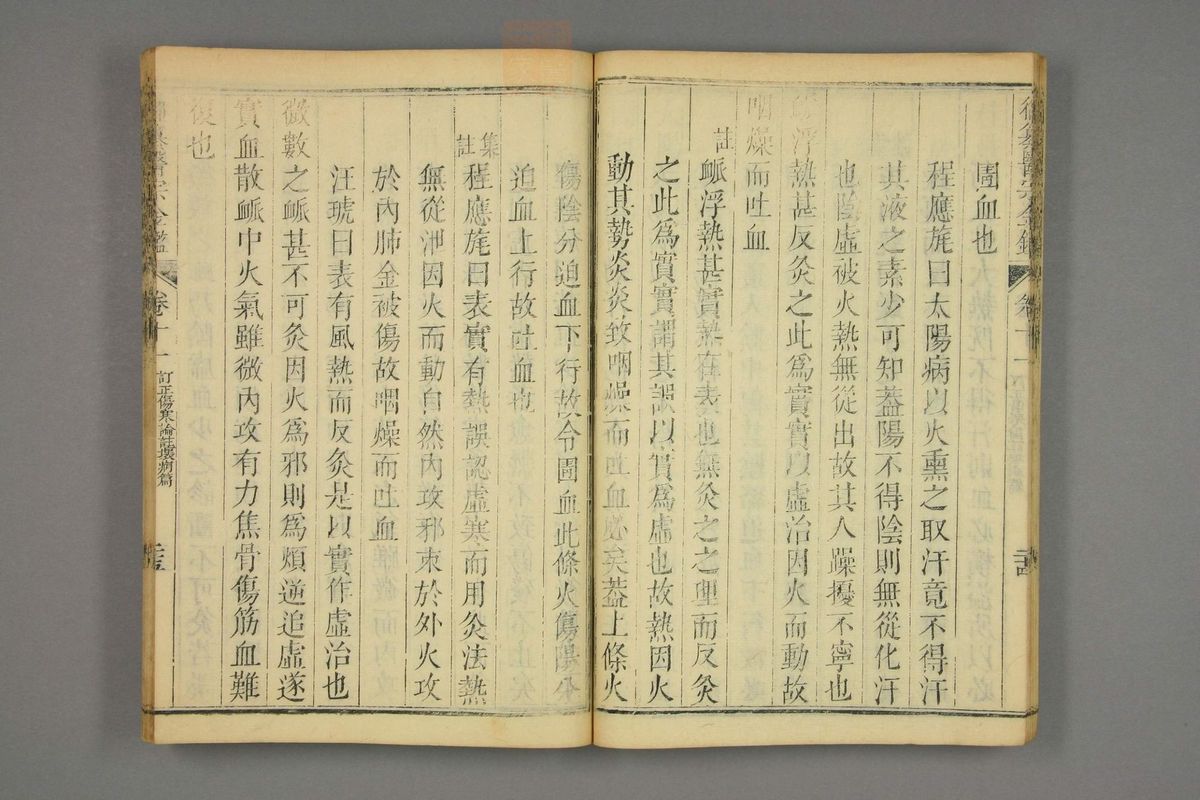 御纂醫宗金鑑 卷十一 二十四
圊血也
程應旄曰太陽病以火熏之取汗竟不得汗
其液之素少可知蓋陽不得陰則無從化汗
也陰虛被火熱無從出故其人躁擾不寧也
脈浮熱甚反灸之此爲實實以虛治因火而動故
咽燥而吐血
註
脈浮熱甚實熱在表也無灸之之理而反灸
之此爲實實謂其誤以實爲虛也故熱因火
動其勢炎炎致咽燥而吐血必矣蓋上條火
傷陰分迫血下行故令圊血此條火傷陽分
迫血上行故吐血也
集註
程應旄曰表實有熱誤認虛寒而用灸法熱
無從泄因火而動自然內攻邪束於外火攻
於內肺金被傷故咽燥而吐血
汪琥曰表有風熱而反灸是以實作虛治也
微數之脈甚不可灸因火爲邪則爲煩逆追虛逐
實血散脈中火氣雖微內攻有力焦骨傷筋血難
復也
御纂醫宗金鑑 卷十一 訂正傷寒論註壞病篇 二十五